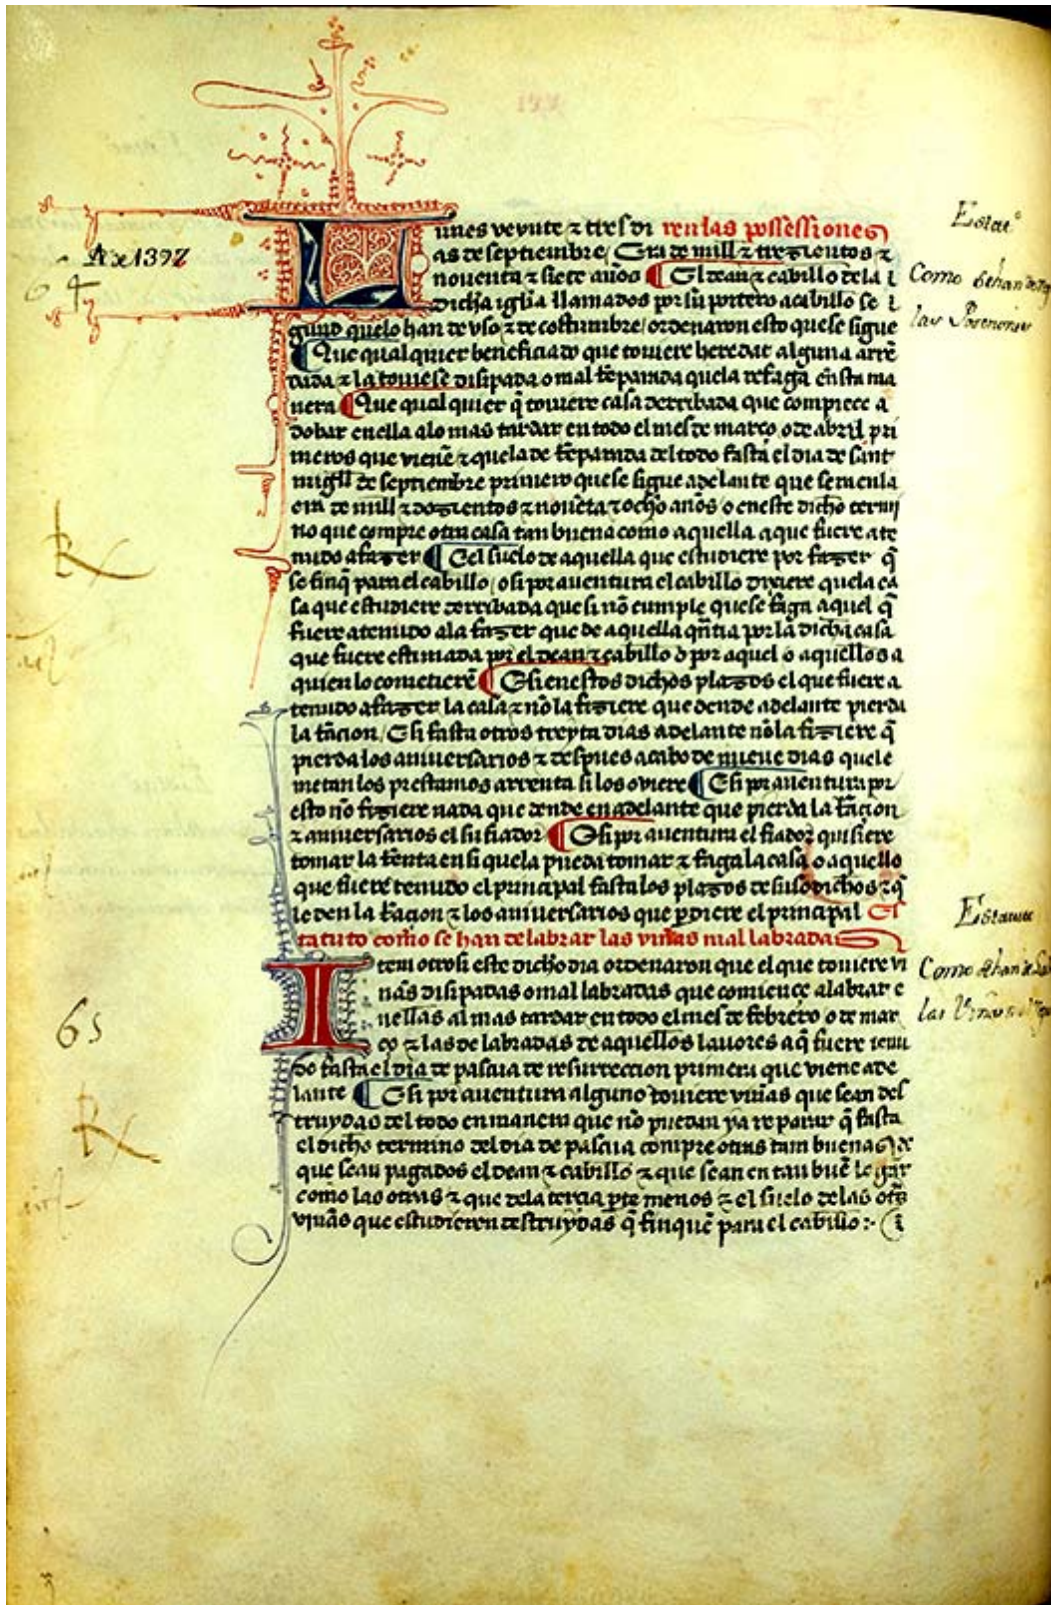 Lunes veynte ⁊ tres di ren las possessiones
as de septiembre Era de mill ⁊ trezientos ⁊
nouenta ⁊ siete años ¶ El dean ⁊ cabillo de la i
dicha iglia llamados por su portero a cabillo se
gund que lo han de vso ⁊ de costumbre ordenaron esto que se sigue
¶ Que qual quier beneficiado que touiere heredat alguna arrē
dada ⁊ la touiese disipada o mal rēparada que la refaga en sta ma
nera ¶ Que qual quier q̄ touiere casa derribada que compiece a
dobar en ella alo mas tardar en todo el mes de março o de abril pri
meros que vienē ⁊ que la de rēparada del todo fasta el dia de sant
migll de septiembre primero que se sigue adelante que sera en la
era de mill ⁊ dozientos ⁊ nouēta ⁊ ocho años o en este dicho termi
no que compre otra casa tan buena como aquella a que fuere ate
nudo a fazer ¶ E el suelo de aquella que estudiere por fazer q̄
se finq̄ para el cabillo o si por auentura el cabillo dixiere que la ca
sa que estudiere derribada que si nō cumple que se faga aquel q̄
fuere atenudo ala fazer que de aquella q̄ntia por la dicha casa
que fuere estimada por el dean ⁊ cabillo o por aquel o aquellos a
quien lo cometierē ¶ E si en estos dichos plazos el que fuere a
tenudo a fazer la casa ⁊ nō la fiziere que dende adelante pierda
la rācion E si fasta otros treynta dias adelante nō la fiziere q̄
pierda los aniuersarios ⁊ despues acabo de nueue dias que le
metan los prestamos arrenta si los ouiere ¶ E si por auentura por
esto nō fiziere nada que dende en adelante que pierda la rācion
⁊ aniuersarios el su fiador ¶ E si por auentura el fiador quisiere
tomar la rēnta en si que la pueda tomar ⁊ faga la casa o aquello
que fuere tenudo el principal fasta los plazos de suso dichos ⁊ q̄
le den la rācion ⁊ los aniuersarios que ꝑdiere el principal Es
tatuto como se han de labrar las viñas mal labradas
Item otrosi este dicho dia ordenaron que el que touiere vi
ñas disipadas o mal labradas que comiençe a labrar e
nellas al mas tardar en todo el mes de febrero o de mar
ço ⁊ las de labradas de aquellos lauores a q̄ fuere tenu
do fasta el dia de pascua de resurreccion primera que viene ade
lante ¶ E si por auentura alguno touiere viñas que sean des
truydas del todo en manera que nō puedan ya reparar q̄ fasta
el dicho termino del dia de pascua compre otras tam buenas de
que sean pagados el dean ⁊ cabillo ⁊ que sean en tan buē logar
como las otras ⁊ que dela tercia ꝑte menos ⁊ el suelo de las otrs
viñas que estudieren destruydas q̄ finquē para el cabillo
Aº de 1397
64
65
Estatº
Como se han de
las Posesiones
Estatuto
Como se han de
las Viñas